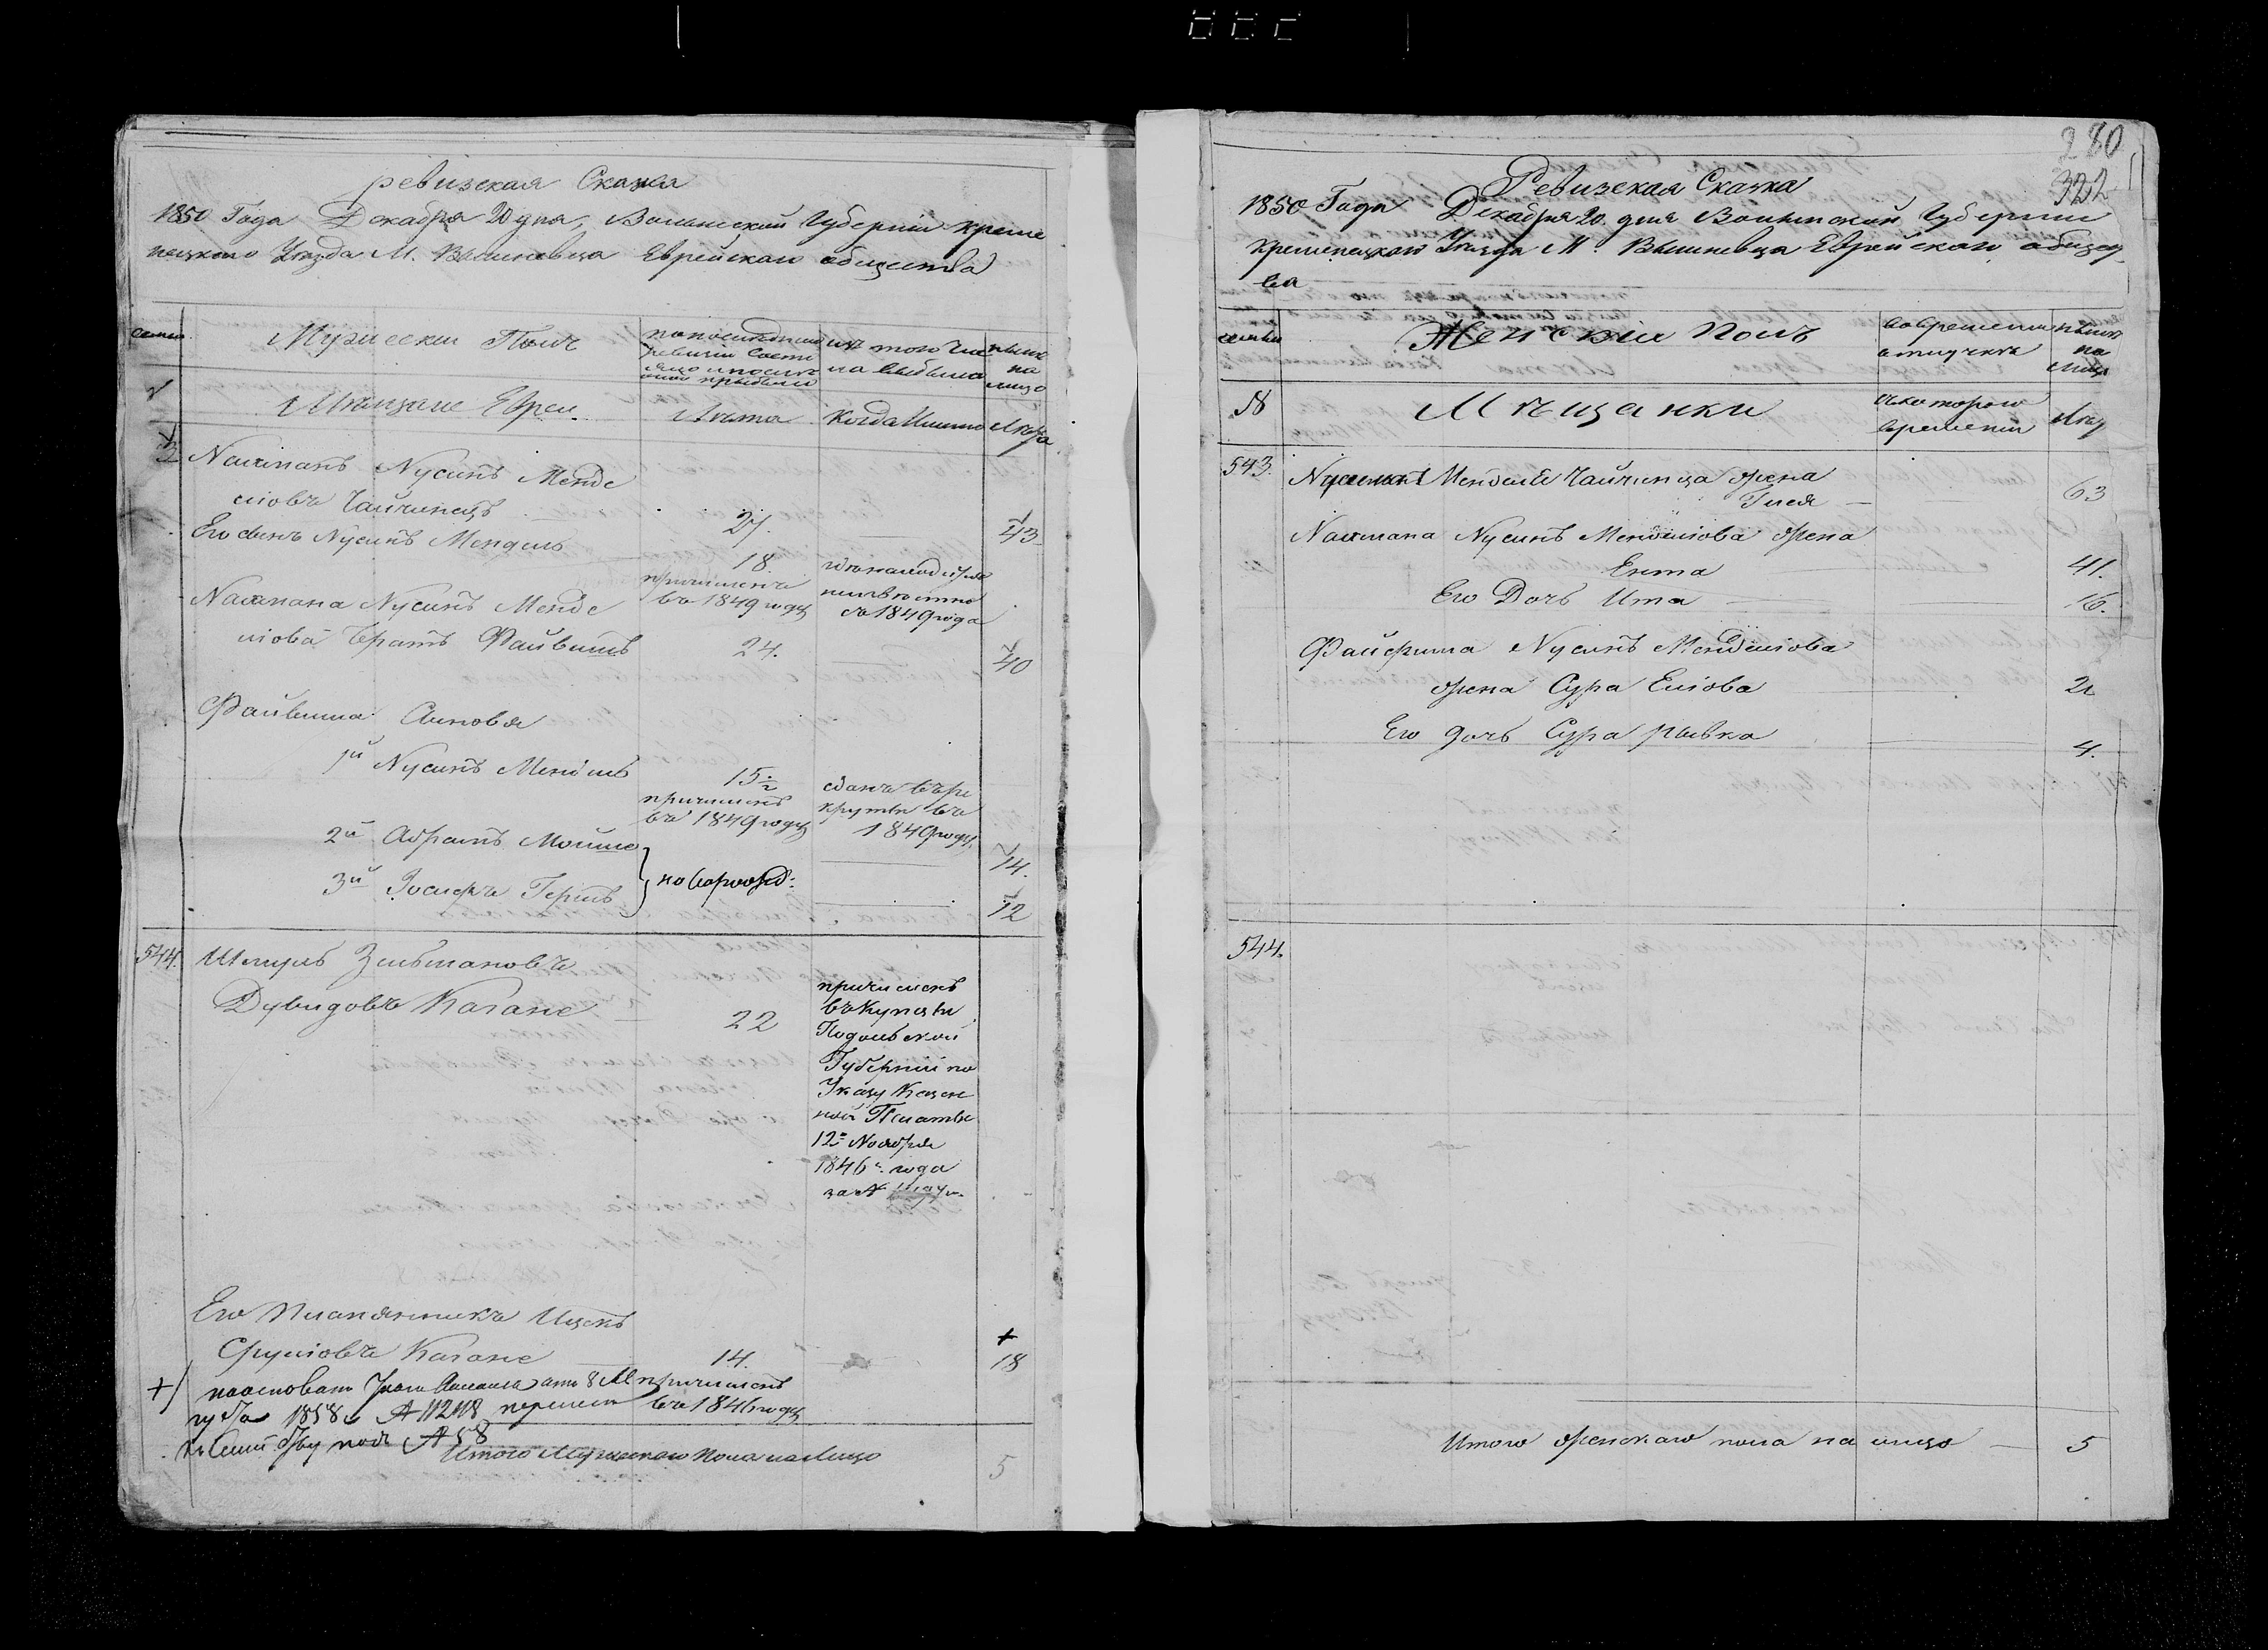 ревизская Сказка
1850 Года Декабря 20 дня, Волынской Губернии Креме
нецкого Уезда М. Вишневца Еврейскаго общества
семьи
Мужескии Полъ
по последней
ревизии Состо
яло и после
оной прибыло
изъ того чис
ла выбыло
ныне
на
лицо
Мещане Евреи
Лета
Когда Именно
Лета
Нахманъ Нусинъ Менде
ліовъ Чайчинецъ
27.
43
Его сынъ Нусинъ Мендель
18.
причисленъ
въ 1849 году
съ 1849 года
Нахмана Нусинъ Менде
ліова братъ Файвишъ
24.
40
Файвиша Сыновья
1й Нусинъ Мендель
15 1/2
причисленъ
въ 1849 году
сданъ въ ре
круты въ
1849 году
2й Абрамъ Мошко
14.
3й Іосифъ Гершъ
новорожд:
12
544.
Шмуль Зельмановъ
Дувидовъ Кагане
22
причисленъ
въ Купцы
Подольской
Губерній по
Указу Казен
ной Палаты
12го Ноября
1846го года
за №
Его Племянникъ Ицекъ
Сруліовъ Кагане
14.
+
18
причисленъ
въ 1846 году
+)
1858
подъ № 58
Итого Мужескаго пола на Лицо
5
280
322
Ревизская Сказка
1850 Года Декабря 20 дня Волынской Губернии
Кременецкаго Уезда М. Вишневца Еврейскаго общес
ва
семьи
Женскіи Полъ
во временной
отлучке
ныне
на
Лицо
№
Мещанки
съ котораго
времени
Лета
543.
Нусина Менделя Чайчинца жена
Гися
63
Нахмана Нусинъ Менделіова жена
Ента
41.
Его Дочь Ита
16.
Файвиша Нусинъ Менделіова
жена Сура Еліова
21
Его дочь Сура Рывка
4.
544.
Итого женскаго пола на лицо
5